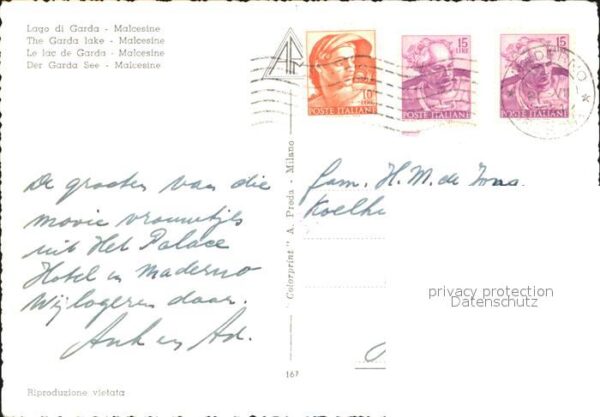 Lago di Garda - Malcesine
The Garda lake - Malcesine
Le lac de Garda - Malcesine
Der Garda See - Malcesine
10
LIRE
POSTE ITALIANE
15
LIRE
POSTE ITALIANE
15
LIRE
POSTE ITALIANE
De groeten van die
mooie vrouwtjes
uit Het Palace
Hotel in Maderno
Wij logeren daar.
"Colorprint" A. Preda - Milano
fam. H. M. de
privacy protection
Datenschutz
167
Riproduzione vietata